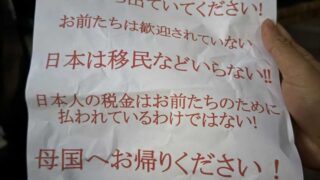 出ていてください!
お前たちは歓迎されていない
日本は移民などいらない!!
日本人の税金はお前たちのために
払われているわけではない!
母国へお帰りください!